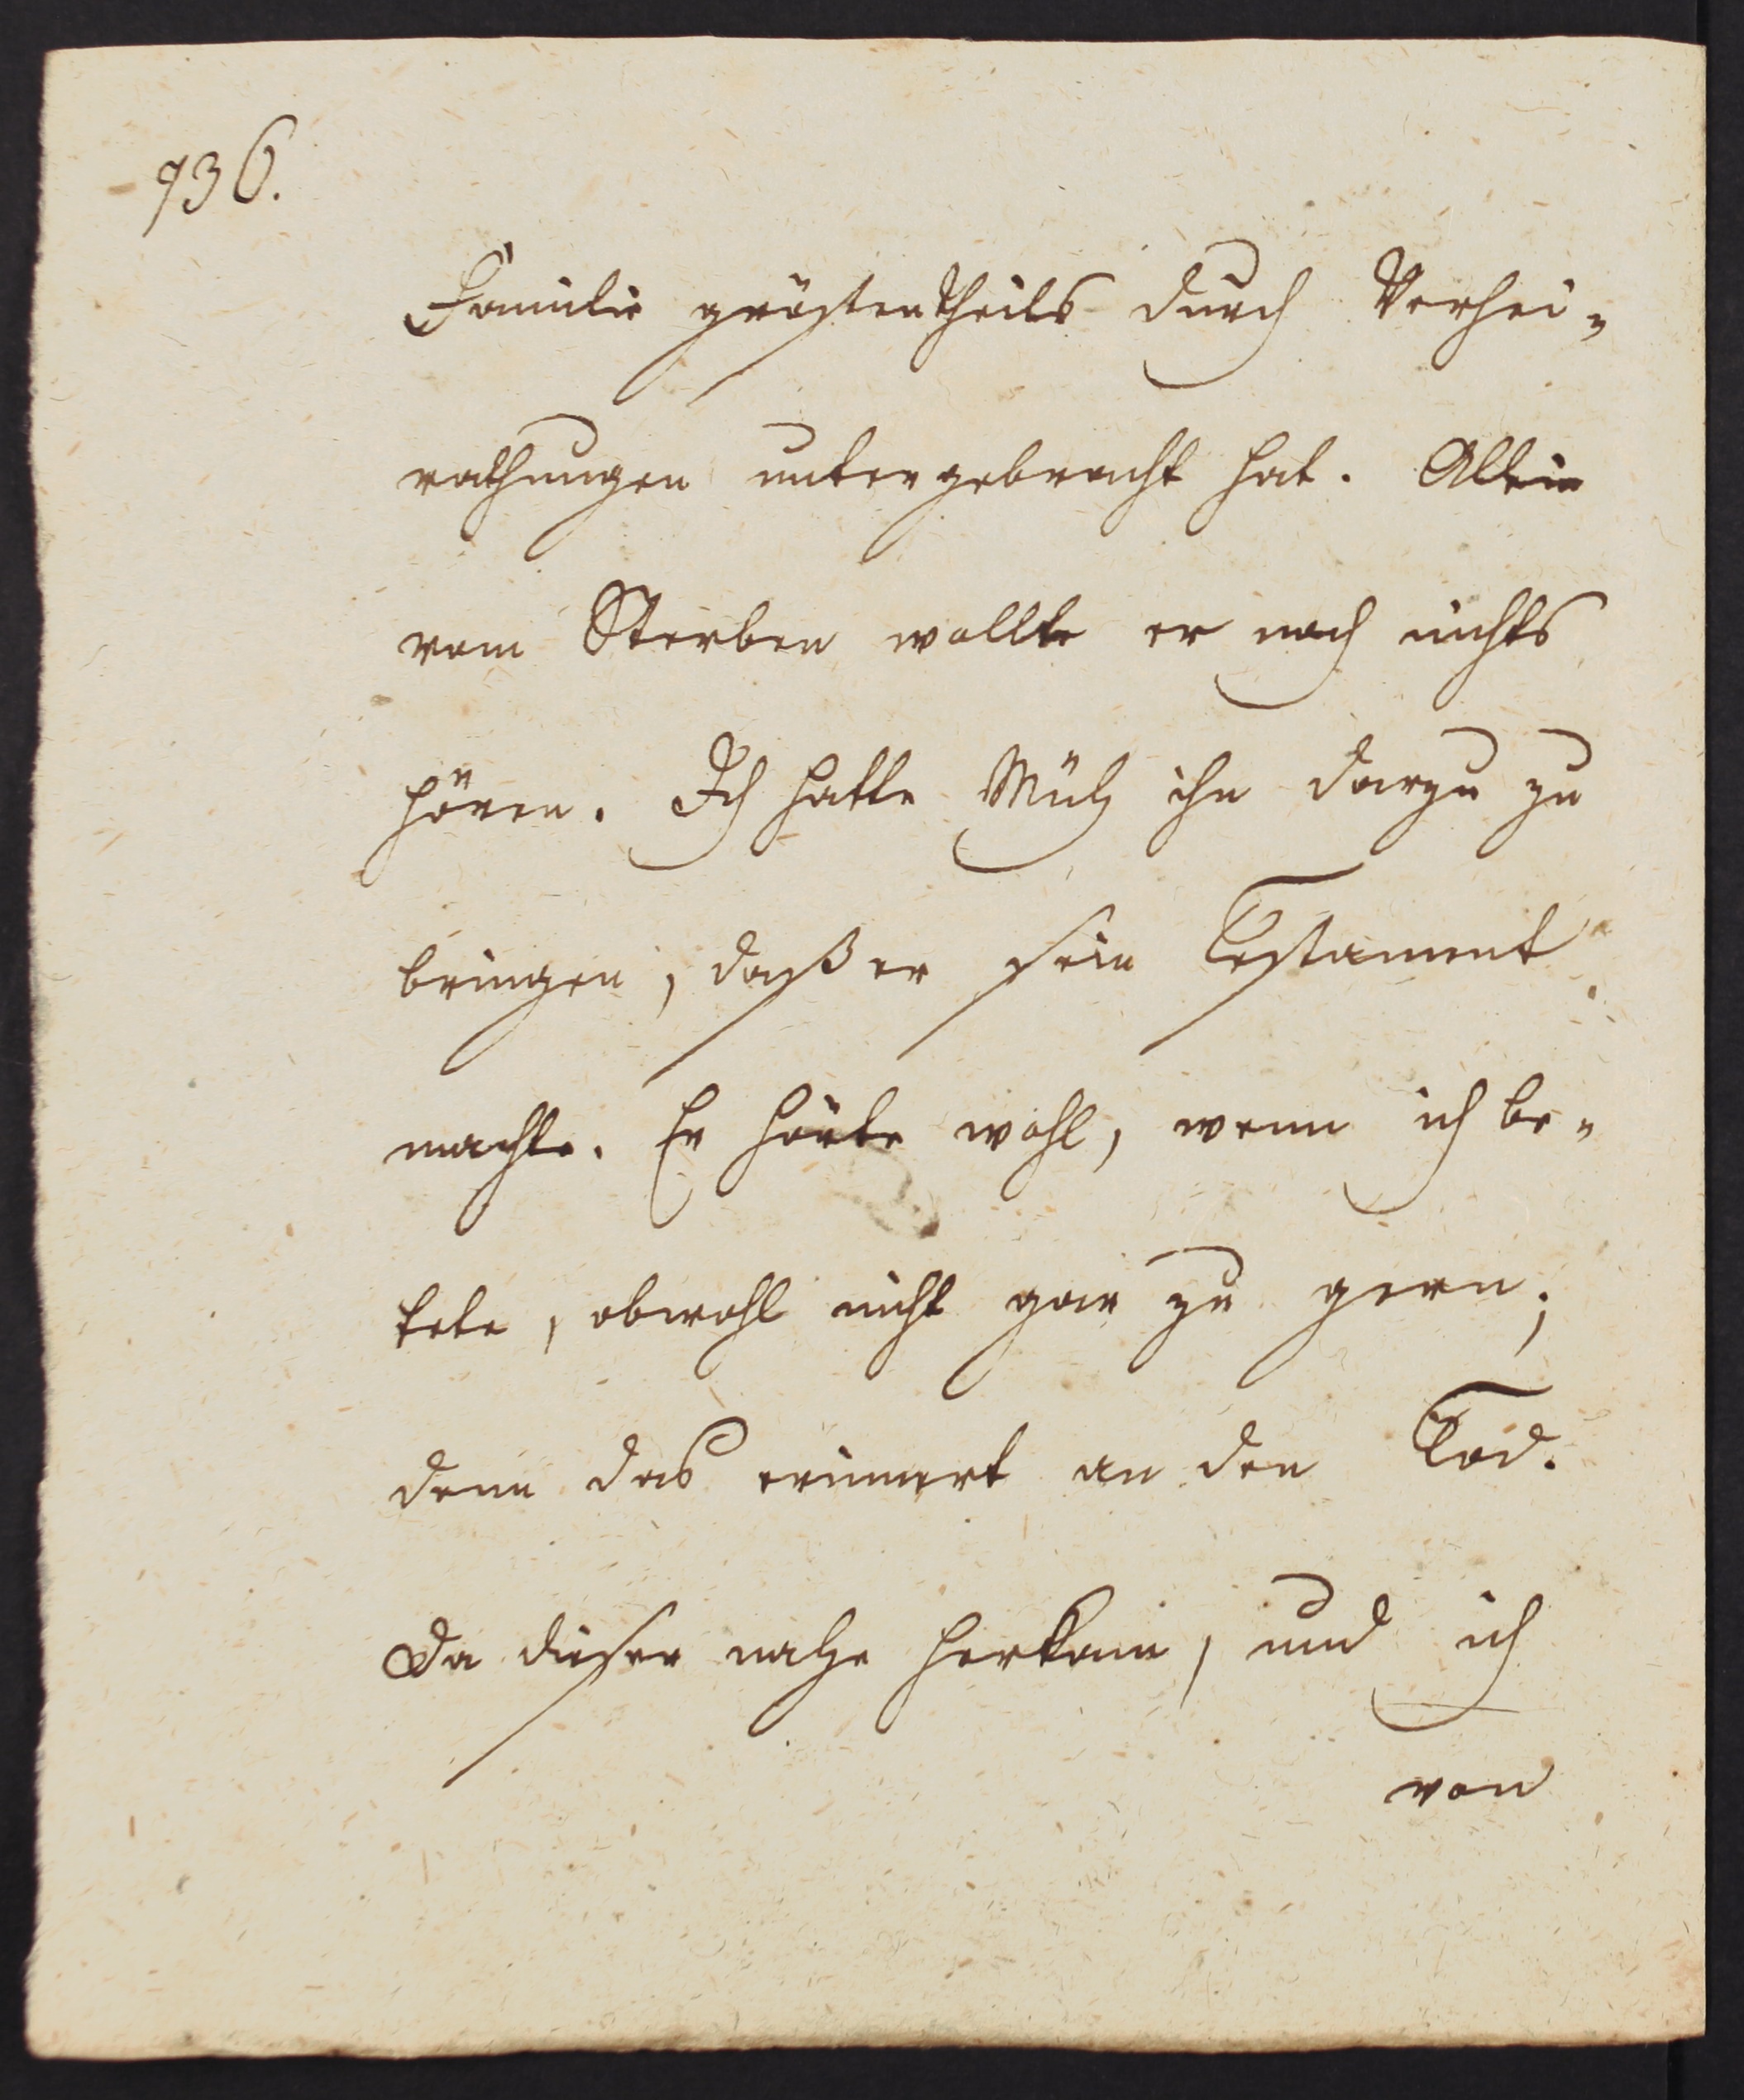 936.
Familie gröstentheils durch Verhei-
rathungen untergebracht hat. Allein
vom Sterben wollte er noch nichts
hören. Ich hatte Müh ihn darzu zu
bringen, daß er sein Testament
machte. Er hörte wohl, wenn ich be-
tete, obwohl nicht gar zu gern;
denn das erinnert an den Tod.
Da dieser nahe herkam, und ich
von